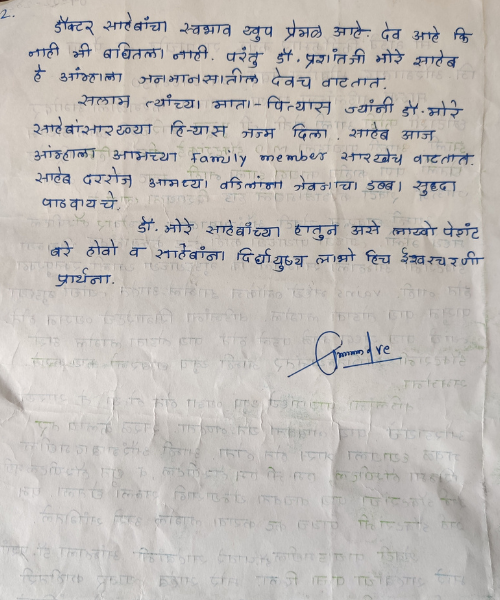 2.
डॉक्टर साहेबांचा स्वभाव खुप प्रेमळ आहे. देव आहे कि
नाही मी बघितला नाही. परंतु डॉ. प्रशांतजी मोरे साहेब
हे आंम्हाला जनमानसातील देवच वाटतात.
सलाम त्यांच्या माता-पित्यास ज्यांनी डॉ. मोरे
साहेबांसारख्या हिऱ्यास जन्म दिला. साहेब आज
आंम्हाला आमच्या family member सारखेच वाटतात.
साहेब दररोज आमच्या वडिलांना जेवणाचा डब्बा सुद्धा
पाठवायचे.
डॉ. मोरे साहेबांच्या हातुन असे लाखो पेशंट
बरे होवो व साहेबांना दिर्घायुष्य लाभो हिच ईश्वरचरणी
प्रार्थना.